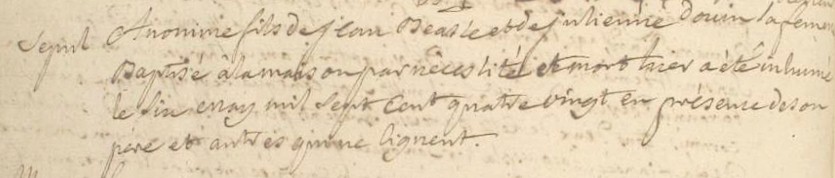 Sepul Anonime fils de Jean Beasse et de julienne Douin sa femme
Baptisé à la maison par nécessité et mort hier a été inhumé
le six may mil sept cent quatre vingt en présence de son
père et autres qui ne signent.